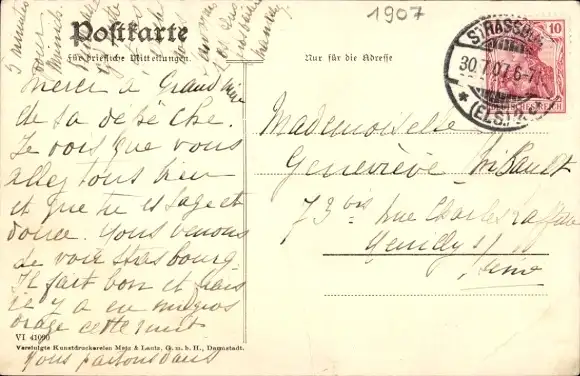 1907
Postkarte
für briefliche Mitteilungen.
Nur für die Adresse
STRASSBURG
30.7.07.6-7
* (ELS.)
10
5 minutes
pour
Merci à Grand'mère
de sa dépêche
Je vois que vous
allez tous bien
et que tu es sage et
douce. Nous venons
de voir Strasbourg
Il fait bon et frais
il y a eu un gros
orage cette nuit
Nous partons dans
Mademoiselle
Geneviève
73 bis rue Charles Laffitte
Neuilly s/
Seine
VI 41090
Vereinigte Kunstdruckereien Metz & Lautz, G. m. b. H., Darmstadt.